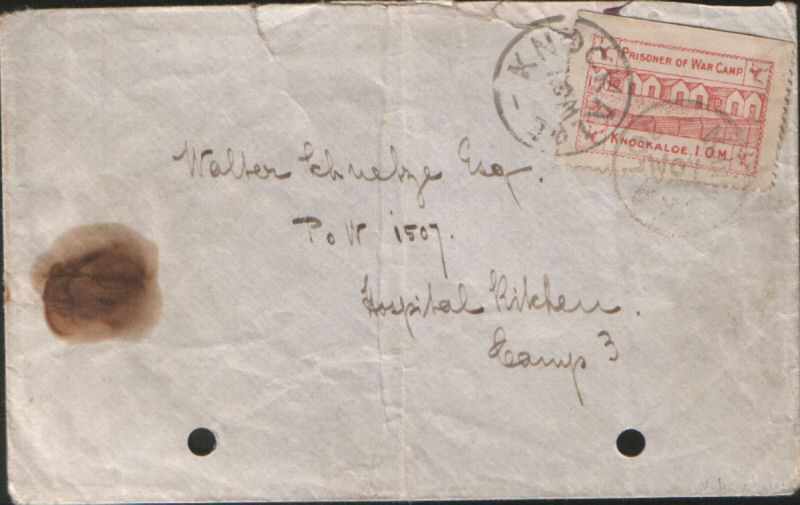 PRISONER OF WAR CAMP
KNOCKALOE. I.O.M.
Walter Schuebze Esq.
PoW 1507.
Hospital Kitchen.
Camp 3